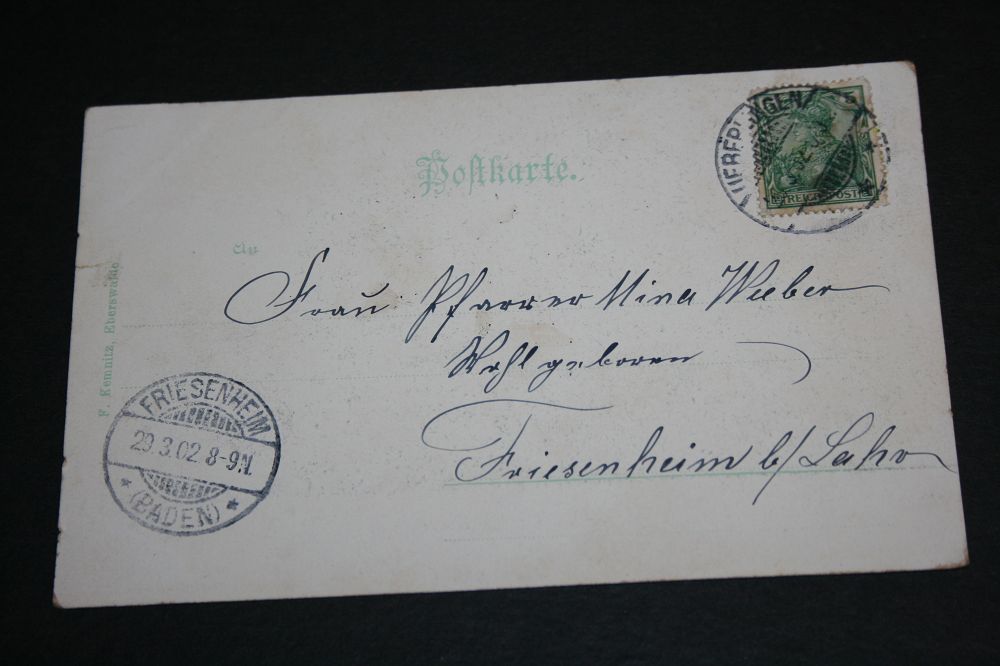 Postkarte.
An
Frau Pfarrer Mina Weeber
Wohlgeboren
Friesenheim b/ Lahr
F. Kemnitz, Eberswalde
FRIESENHEIM
29.3.02 8-9N.
* (BADEN) *
REICHSPOST